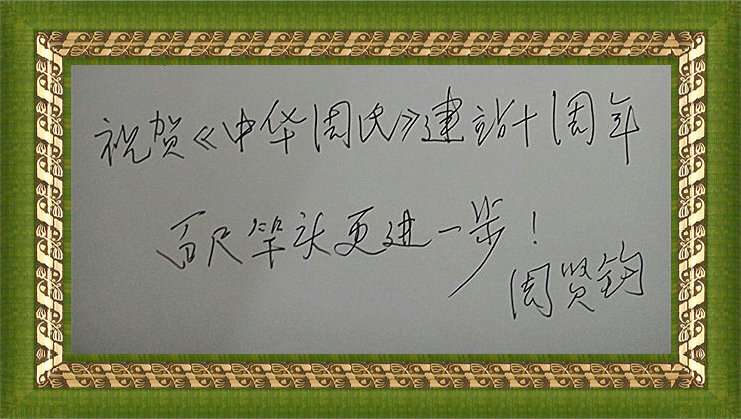 祝贺《中华周氏》建站十周年
百尺竿头更进一步！
周贤钧